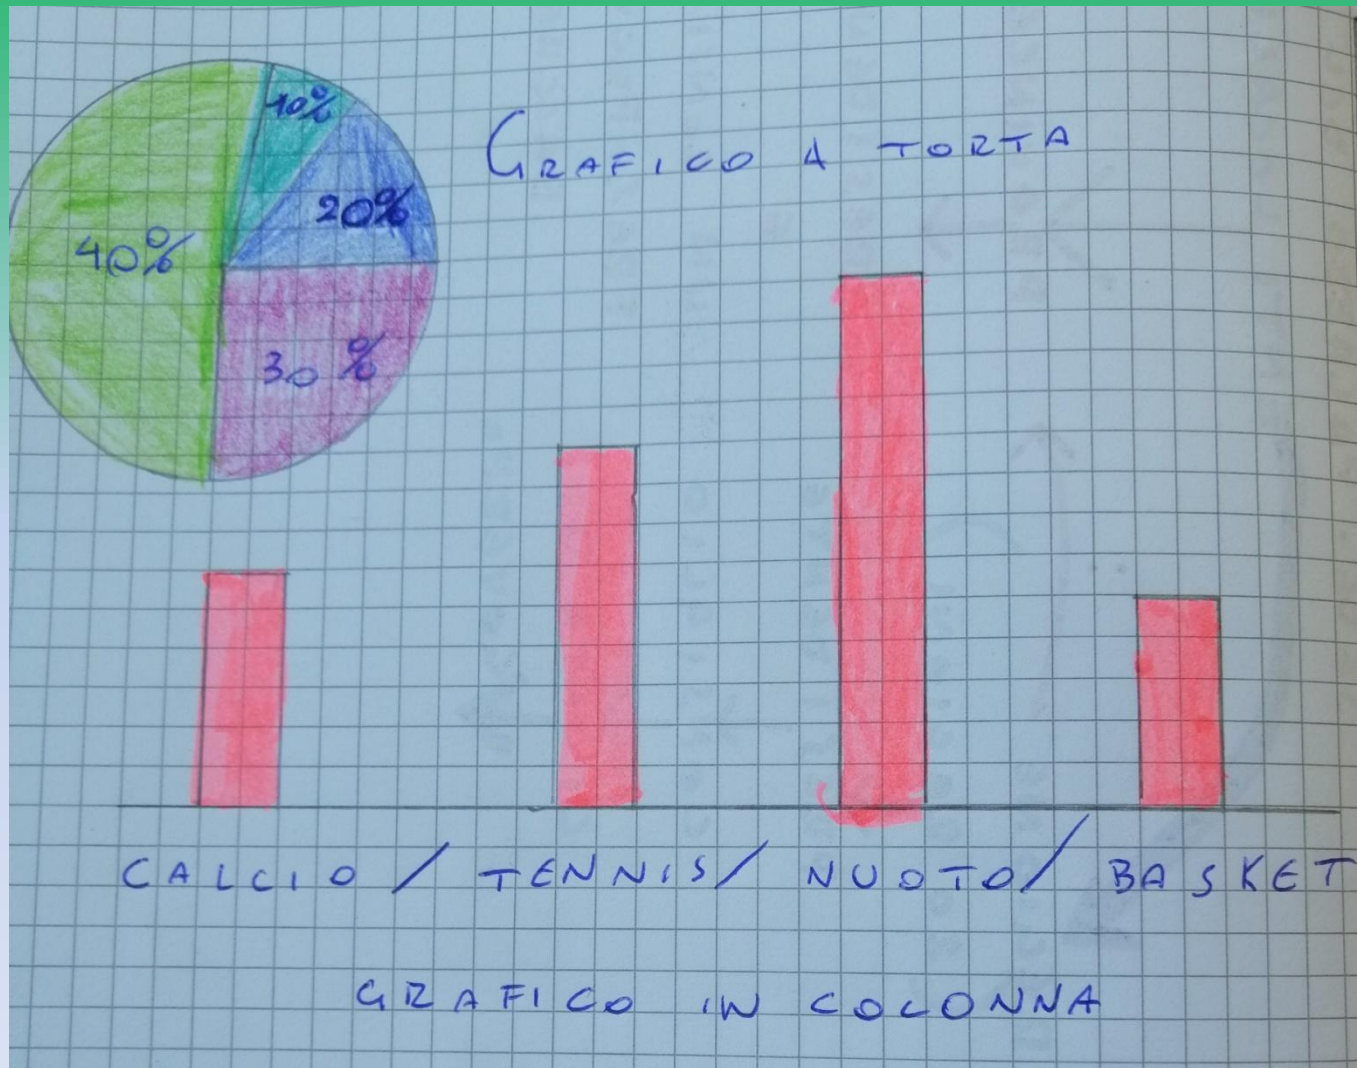 10%
GRAFICO A TORTA
20%
40%
30%
CALCIO / TENNIS / NUOTO / BASKET
GRAFICO IN COLONNA